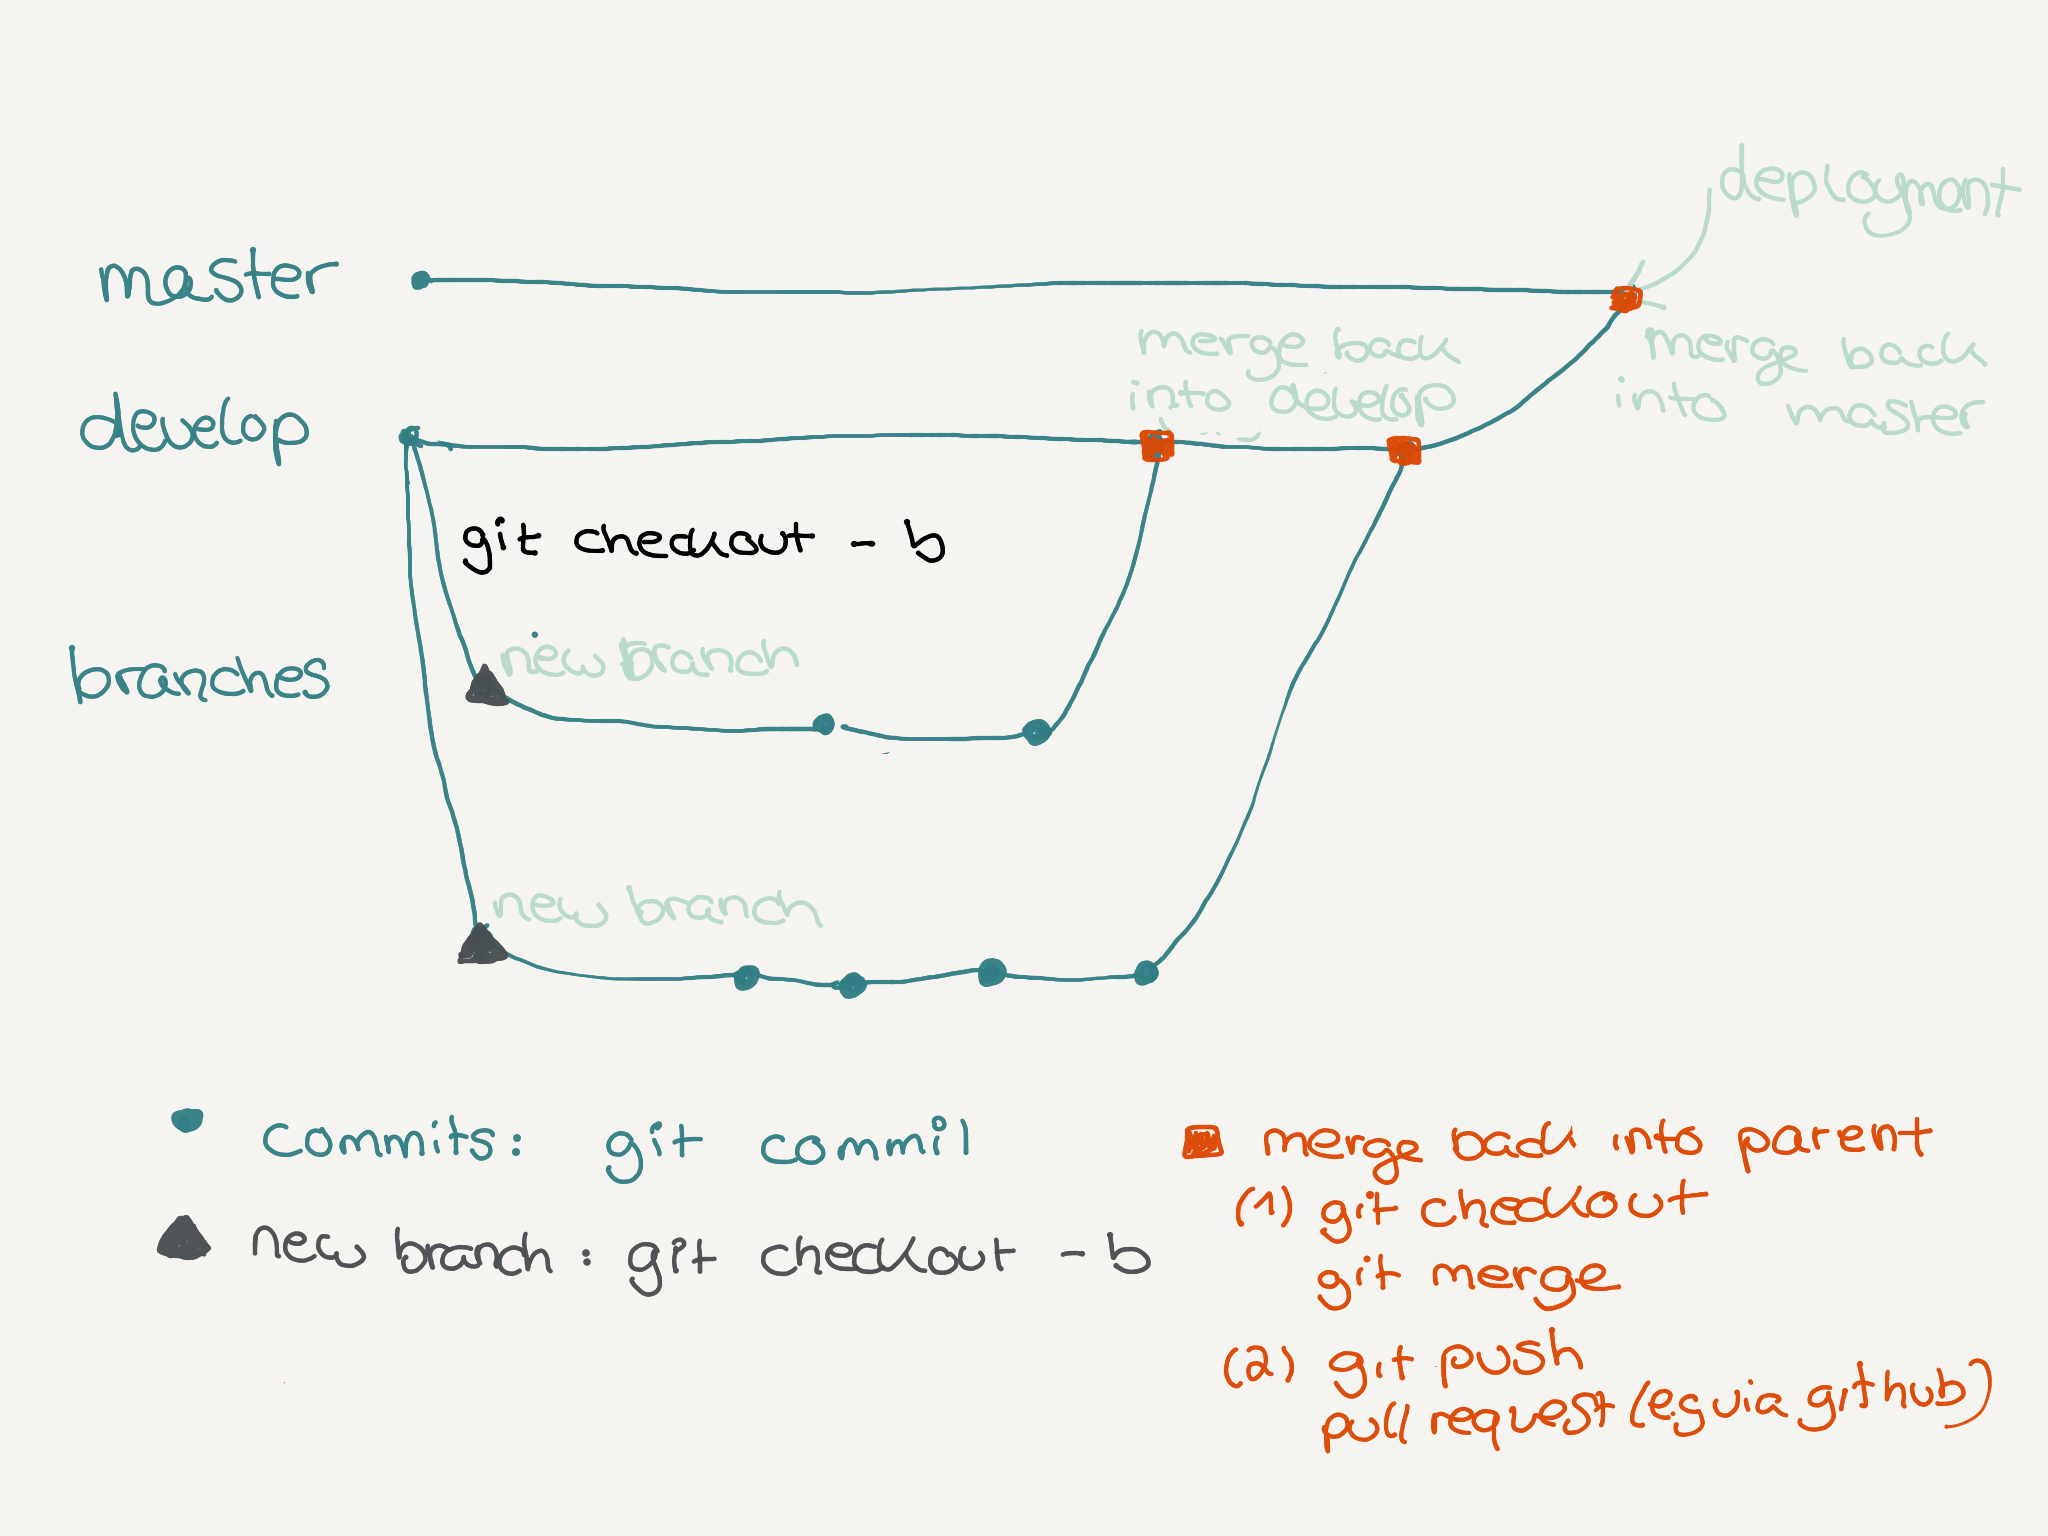 deployment
master
merge back
into develop
merge back
into master
develop
git checkout - b
branches
new branch
new branch
commits: git commit
new branch : git checkout - b
merge back into parent
(1) git checkout
git merge
(2) git push
pull request (e.g via github)